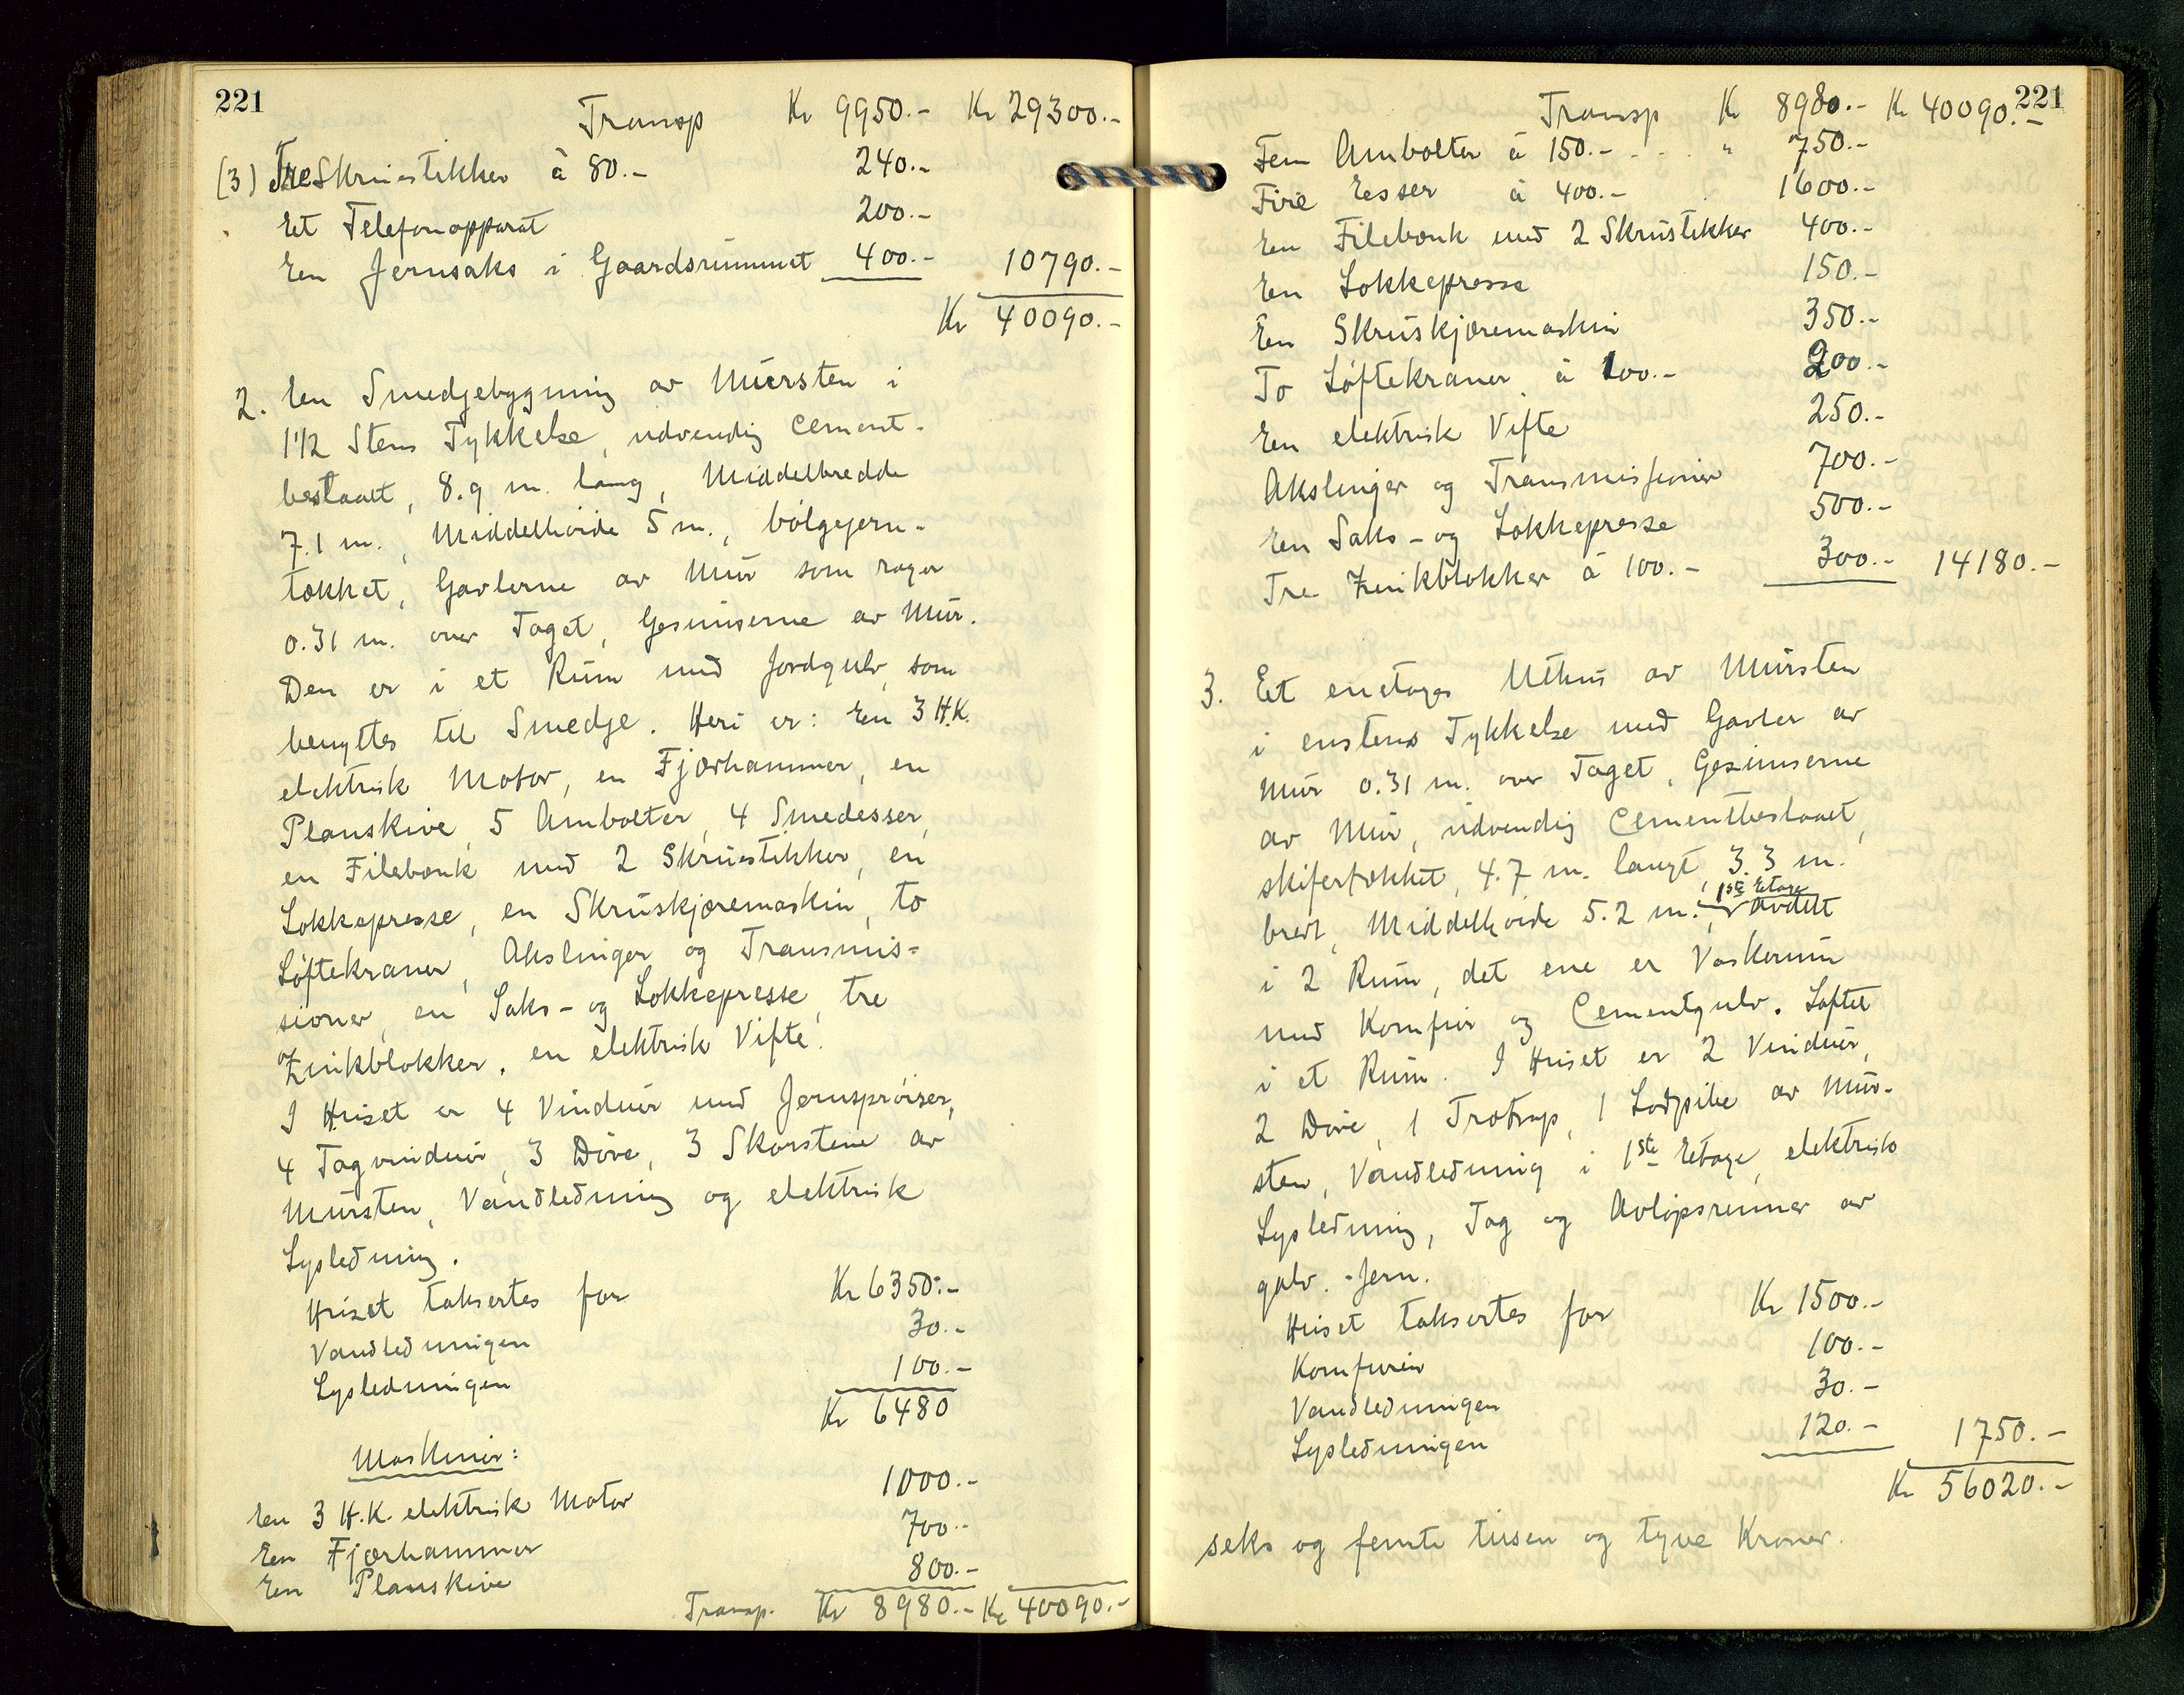 221
Transp Kr 9950.- Kr 29300.-
(3) Tre Skruestikker à 80.- 240.-
Et Telefonapparat 200.-
En Jernsaks i Gaardsrummet 400.- 10790.-
Kr 40090.-
2. En Smedjebygning av Mursten i
1 1/2 Stens Tykkelse, udvendig Cement-
beslaaet, 8.9 m. lang, Middelbredde
7.1 m., Middelhøide 5 m., bølgejern-
tækket, Gavlerne av Mur som rager
0.31 m. over Taget, Gesimserne av Mur.
Den er i et Rum med Jordgulv, som
benyttes til Smedje. Heri er: En 3 H.K.
elektrisk Motor, en Fjærhammer, en
Planskive, 5 Ambolter, 4 Smedesser,
en Filebænk med 2 Skruestikker, en
Lokkepresse, en Skruskjæremaskin, to
Løftekraner, Akslinger og Transmis=
sioner, en Saks- og Lokkepresse, tre
Zinkblokker, en elektrisk Vifte.
I Huset er 4 Vinduer med Jernsprosser,
4 Tagvinduer, 3 Døre, 3 Skorstene av
Mursten, Vandledning og elektrisk
Lysledning.
Huset taksertes for Kr 6350.-
Vandledningen 30.-
Lysledningen 100.-
Kr 6480
Maskiner:
En 3 H.K. elektrisk Motor 1000.-
En Fjærhammer 700.-
En Planskive 800.-
Transp. Kr 8980.- Kr 40090.-
221
Transp Kr 8980.- Kr 40090.-
Fem Ambolter à 150.- . . . " 750.-
Fire Esser à 400.- 1600.-
En Filebænk med 2 Skrustikker 400.-
En Lokkepresse 150.-
En Skruskjæremaskin 350.-
To Løftekraner à 100.- 200.-
En elektrisk Vifte 250.-
Akslinger og Transmissioner 700.-
En Saks- og Lokkepresse 500.-
Tre Zinkblokker à 100.- 300.- 14180.-
3. Et enetages Uthus av Mursten
i enstens Tykkelse med Gavler av
Mur 0.31 m. over Taget, Gesimserne
av Mur, udvendig Cementbeslaaet,
skifertækket, 4.7 m. langt, 3.3 m.
bredt, Middelhøide 5.2 m., 1ste Etage avdelt
i 2 Rum, det ene er Vaskerum
med Komfur og Cementgulv. Loftet
i et Rum. I Huset er 2 Vinduer,
2 Døre, 1 Trætrap, 1 Lodpibe av Mur-
sten, Vandledning i 1ste Etage, elektrisk
Lysledning, Tag og Avløpsrenner av
galv. Jern.
Huset taksertes for Kr 1500.-
Komfuren 100.-
Vandledningen 30.-
Lysledningen 120.- 1750.-
Kr 56020.-
seks og femti tusen og tyve Kroner.